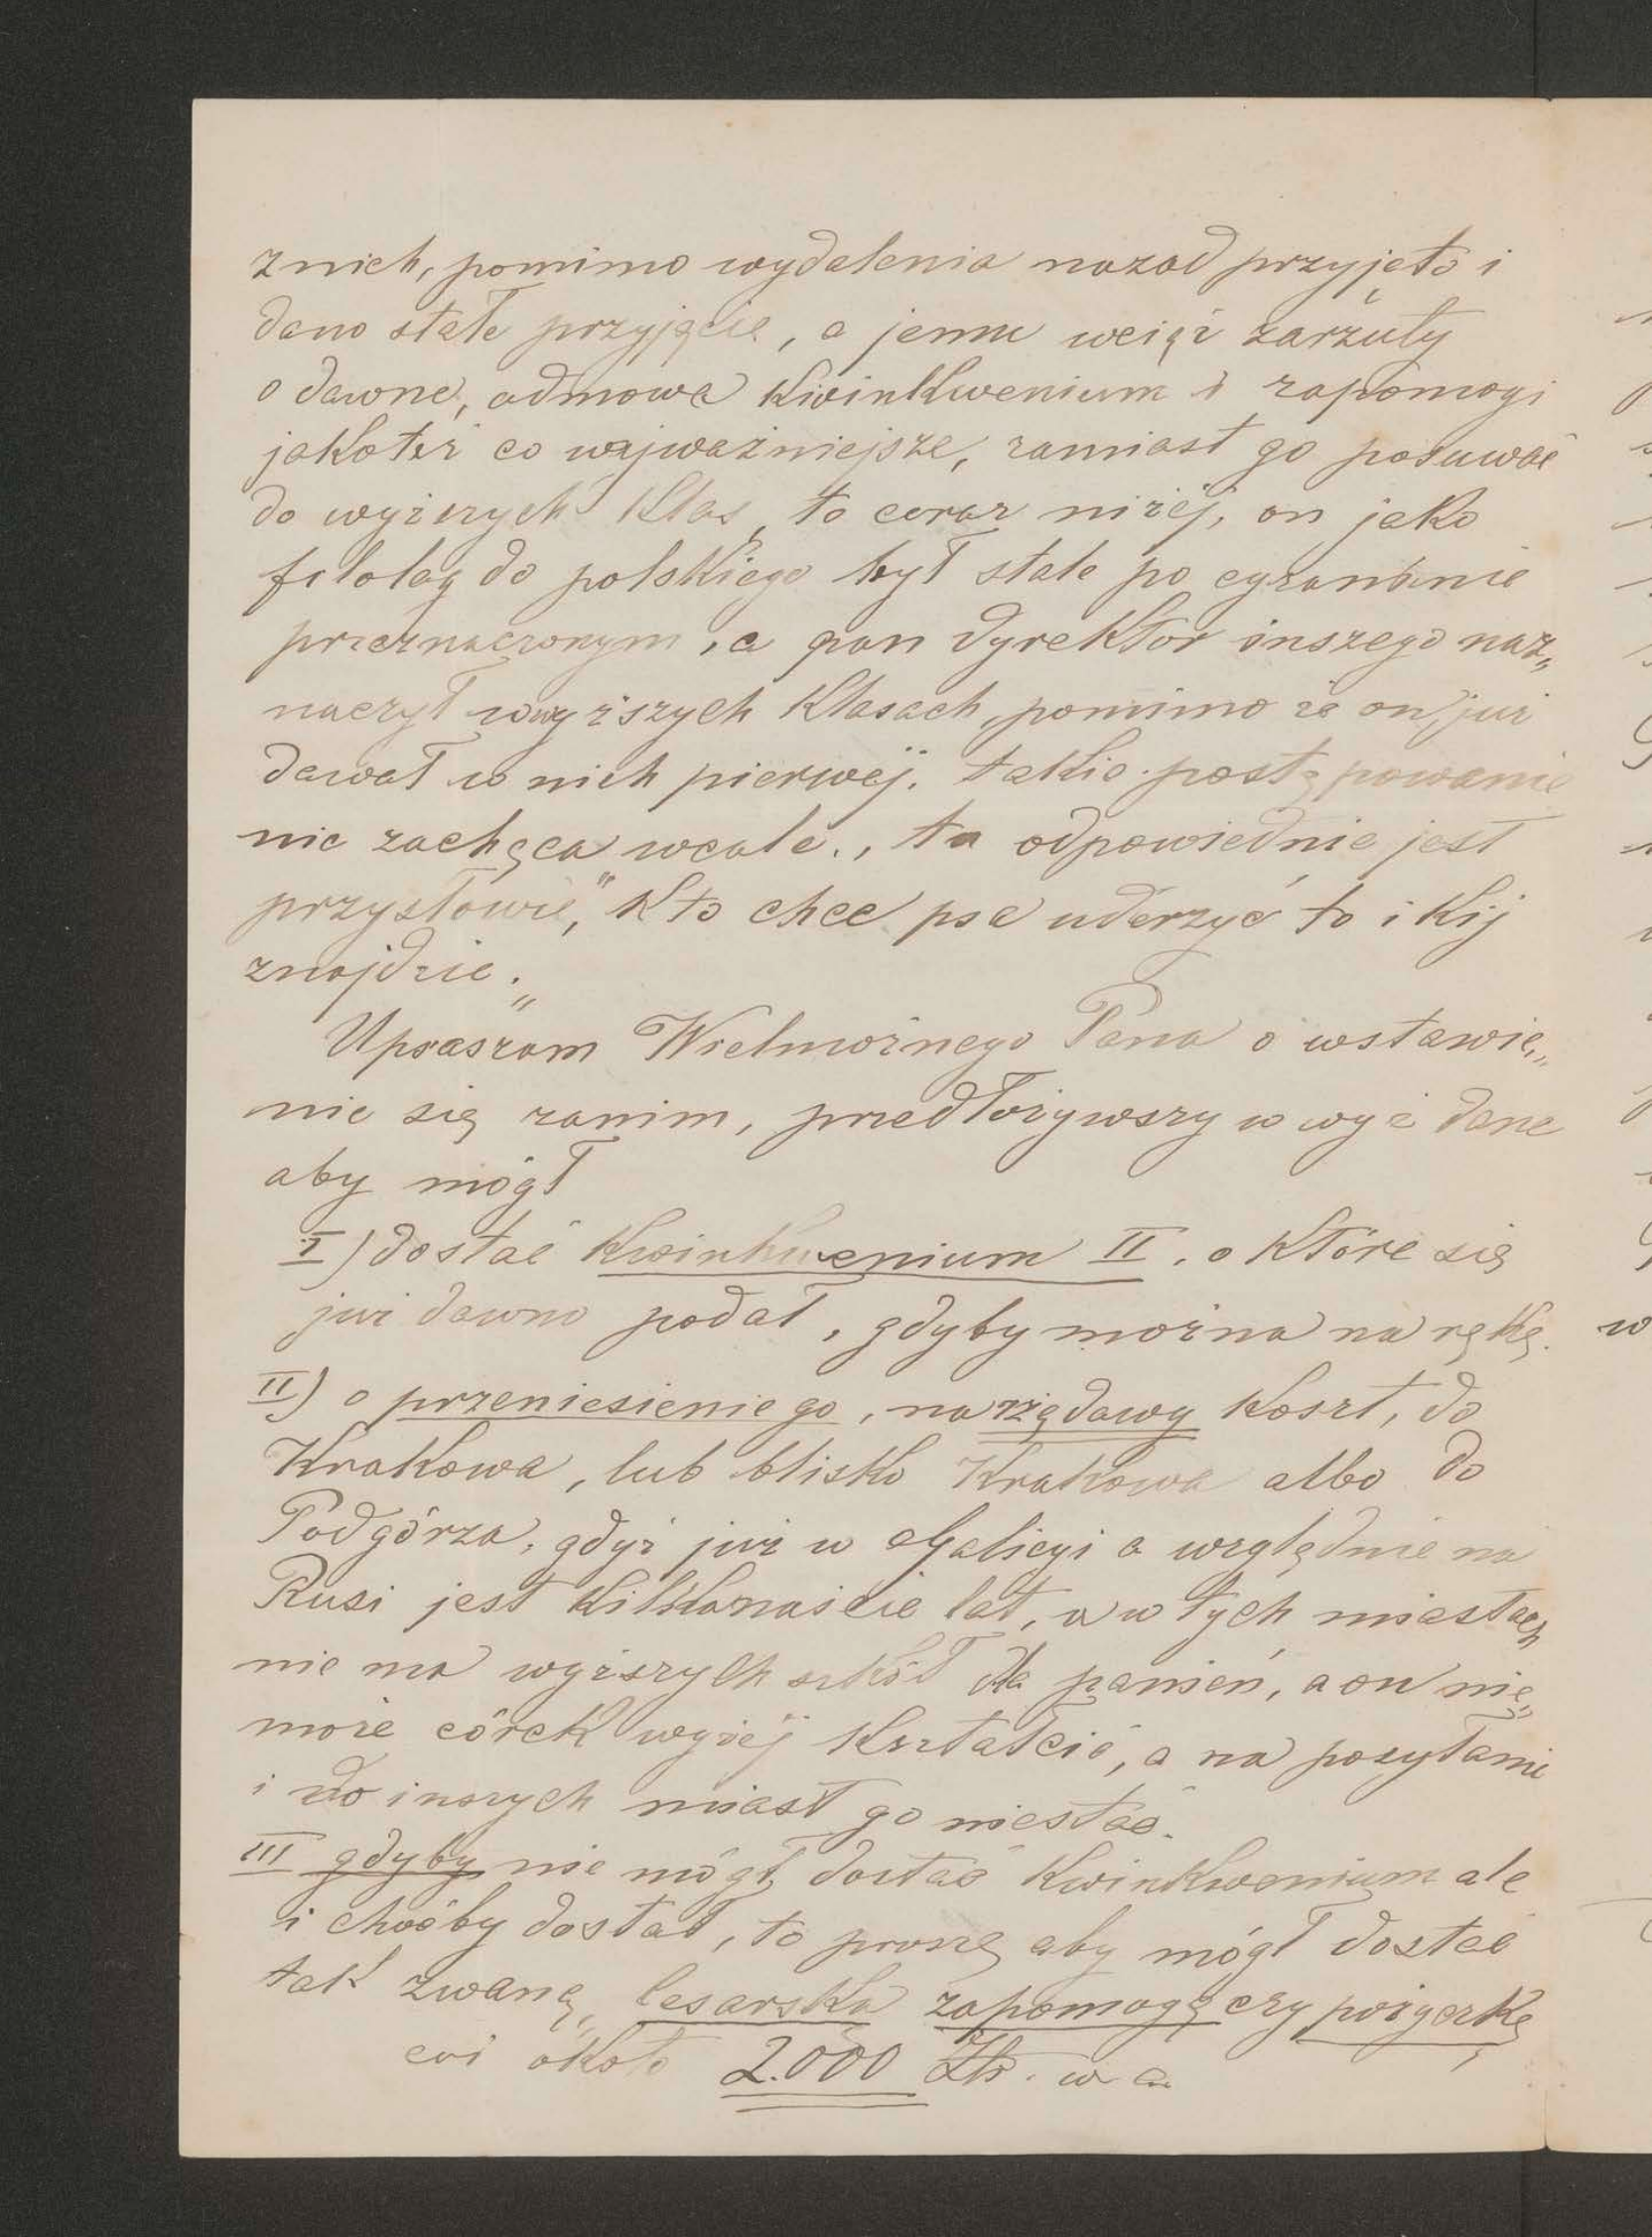 z nich, pomimo wydalenia nazad przyjęto i
dano stałe przyjęcie, a jemu wciąż zarzuty
o dawne, odmowa kwinkwenium i zapomogi
jakoteż co najważniejsze, zamiast go posuwać
do wyższych klas, to coraz niżej, on jako
filolog do polskiego był stale po egzaminie
przeznaczonym, a pan dyrektor inszego naz„
naczył w wyższych klasach, pomimo że on już
dawał w nich pierwej. takie postępowanie
nie zachęca wcale., tu odpowiednie jest
przysłowie, "kto chce psa uderzyć to i kij
znajdzie.„
Upraszam Wielmożnego Pana o wstawie„
nie się zanim, przedłożywszy w wyż dane
aby mógł
I) dostać kwinkwenium II. o które się
już dawno podał, gdyby można na rękę.
II) o przeniesienie go, na rządowy koszt, do
Krakowa, lub blisko Krakowa albo do
Podgórza, gdyż już w Galicyi a względnie na
Rusi jest kilkanaście lat, a w tych miastach
nie ma wyższych szkół dla panien, a on nie„
może córek wyżej kształcić, a na posyłanie
i do inszych miast go niestać.
III gdyby nie mógł dostać kwinkwenium ale
i choćby dostał, to proszę aby mógł dostać
tak zwaną, cesarską zapomogę czy pożyczkę,
coś około 2.000 Złr. w a.